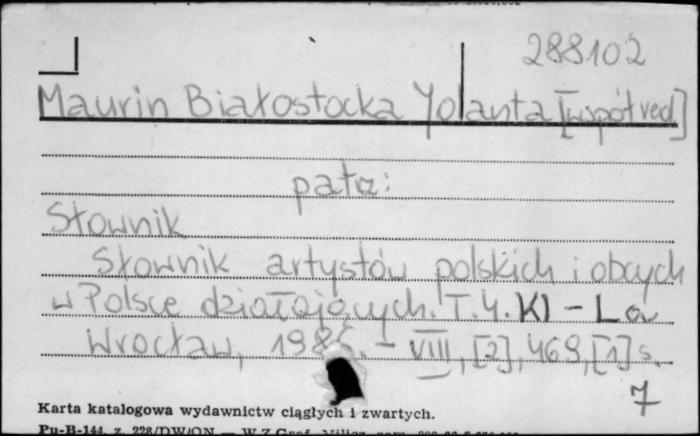 288102
Maurin Białostocka Jolanta [współred]
patrz:
Słownik
Słownik artystów polskich i obcych
w Polsce działających. T. 4. Kl - La
Wrocław, 1986. - VIII, [2], 469, [1] s.
7
Karta katalogowa wydawnictw ciągłych i zwartych.
Pu-B-144, z. 228/DW/ON — W.Z.Graf.